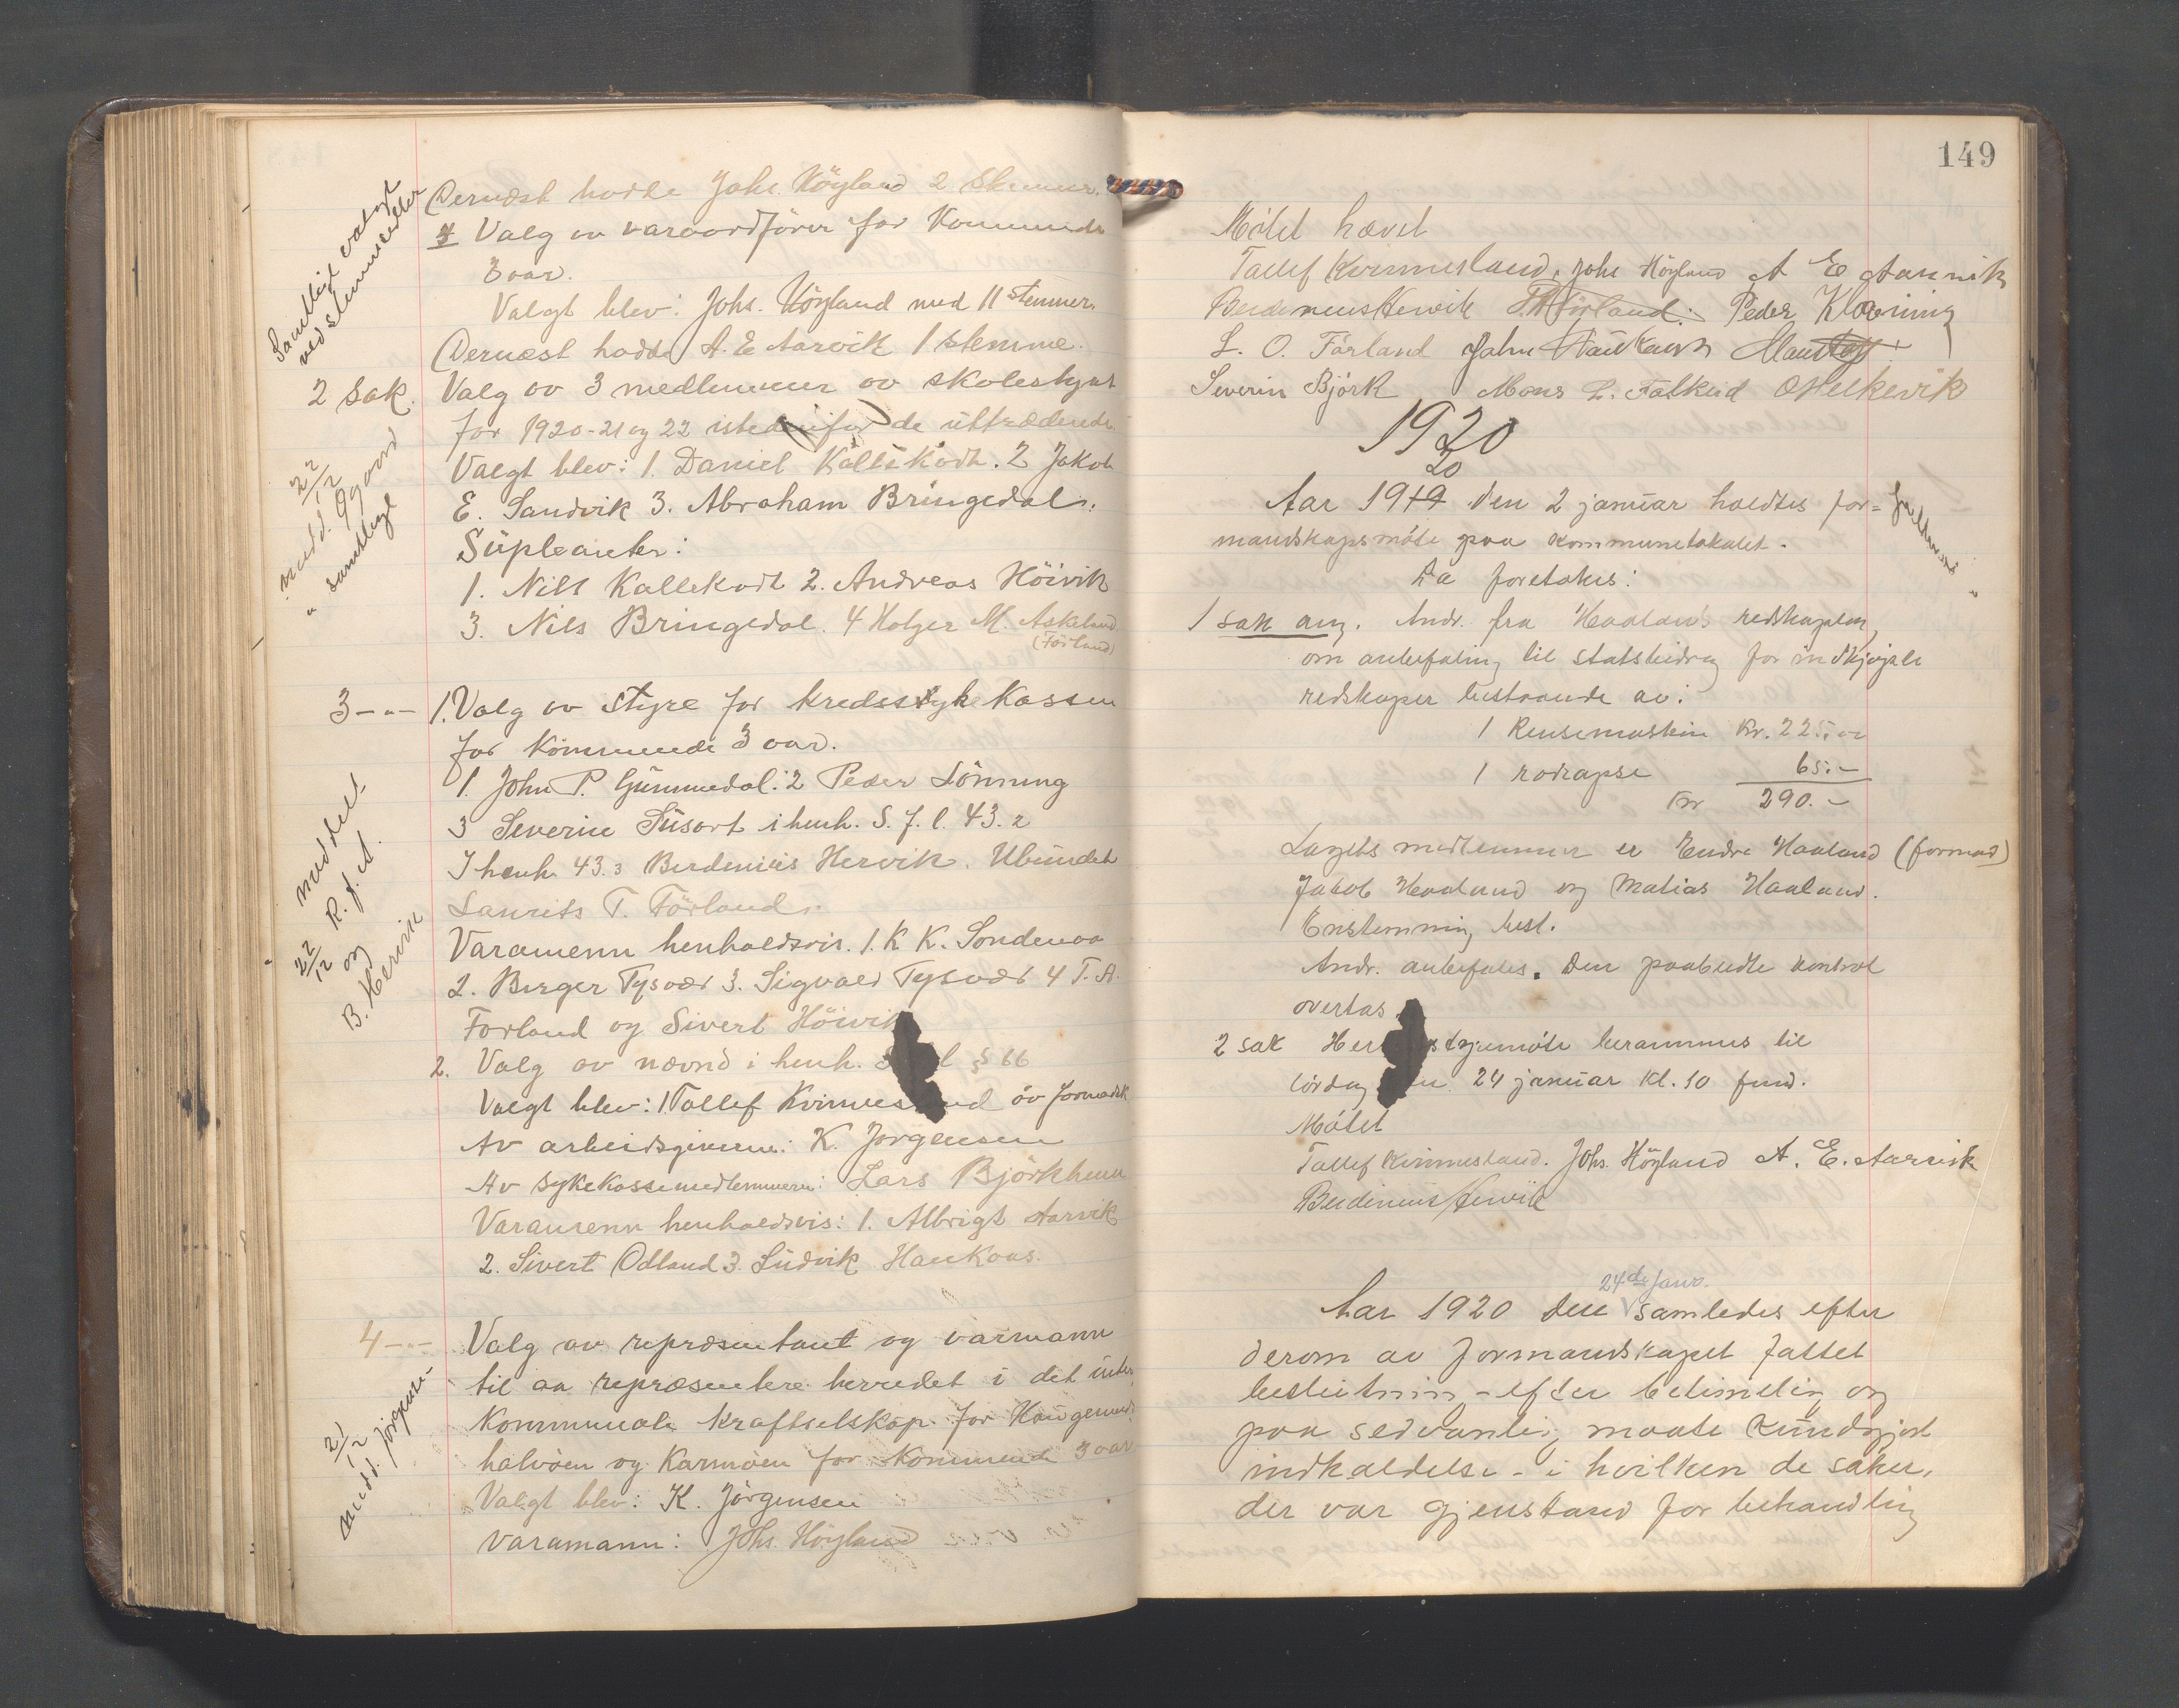 Dernæst hadde Johs. Höyland 2 Stemmer.
Valg av varaordförer for Kommende
3 aar.
Valgt blev: Johs. Höyland med 11 stemmer.
Dernæst hadde A. E. Aarvik 1 stemme.
Samtlige valgt
ved stemmesedler
2 Sak. Valg av 3 medlemmer av skolestyret
for 1920-21 og 22 istedenfor de uttrædende.
Valgt blev: 1. Daniel Kallekodt. 2 Jakob
E. Sandvik 3. Abraham Bringedal.
Supleanter:
1. Nils Kallekodt 2. Andreas Höivik
3. Nils Bringedal. 4 Holger M. Askeland
(Förland)
22/12
medd. ØGaard
" samtlige
3-"- 1. Valg av Styre for kredssykekassen
for Kommende 3 aar.
1. John P. Gummedal: 2 Peder Lönning
3 Severin Susort i henh. S. f. l. 43.2
I henh. 43.3 Berdinius Hervik. Ubundet
Laurits T. Förland.
Varamenn henholdsvis. 1. K K. Søndenaa
2. Birger Tysvær 3. Sigvald Tysvær 4 T. A.
Forland og Sivert Höivik
meddelt
22/12 R. f. A.
og
B. Hervik
2. Valg av nævnd i henh. S l § 66
Valgt blev: 1 Tallef Kvinnesland av formdsk
Av arbeidsgiverne: K. Jørgensen
Av sykekassemedlemmern: Lars Björkhaug
Varamenn henholdsvis: 1. Albrigt Aarvik
2. Sivert Odland 3. Ludvik Haukaas.
4-"- Valg av repræsentant og varmann
til aa repræsentere herredet i det inter
Kommunale Kraftselskap for Haugesund
halvöen og Karmöen for Kommende 3 aar
Valgt blev: K. Jörgensen
Varamann: Johs. Höyland
21/12
medd. Jörgensen
149
Mötet hævet
Tallef Kvinnesland, Johs Höyland A E Aarvik
Berdinius Hervik T. A. Forland. Peder Klovning
L. O. Førland John Haukaas
Severin Björk Mons L. Falkeid O Helkevik
1920
20
Aar 1919 den 2 januar holdtes for=
mandskapsmöte paa kommunelokalet.
Da foretokes:
1 sak ang. Andr. fra Haaland's redskapslag
om anbefaling til statsbidrag for indkjöpte
redskaper bestaaende av:
1 Rensemaskin Kr. 225,00
1 rodrapse 65.-
Kr 290.-
Lagets medlemmer er Endre Haaland (formad)
Jakob Haaland og Matias Haaland.
Enstemmig besl.
Andr. anbefales. Den paabudte kontrol
overtas.
2 sak Herredsstyremöte berammes til
lördag den 24 januar Kl. 10 fmd.
Mötet
Tallef Kvinnesland. Johs. Höyland A. E. Aarvik
Berdinius Hervik
24de Janr.
Aar 1920 den samledes efter
derom av formandskapet fattet
beslutning - efter betimelig og
paa sedvanlig maate kundgjort
indkaldelse - i hvilken de saker,
der var gjenstand for behandling